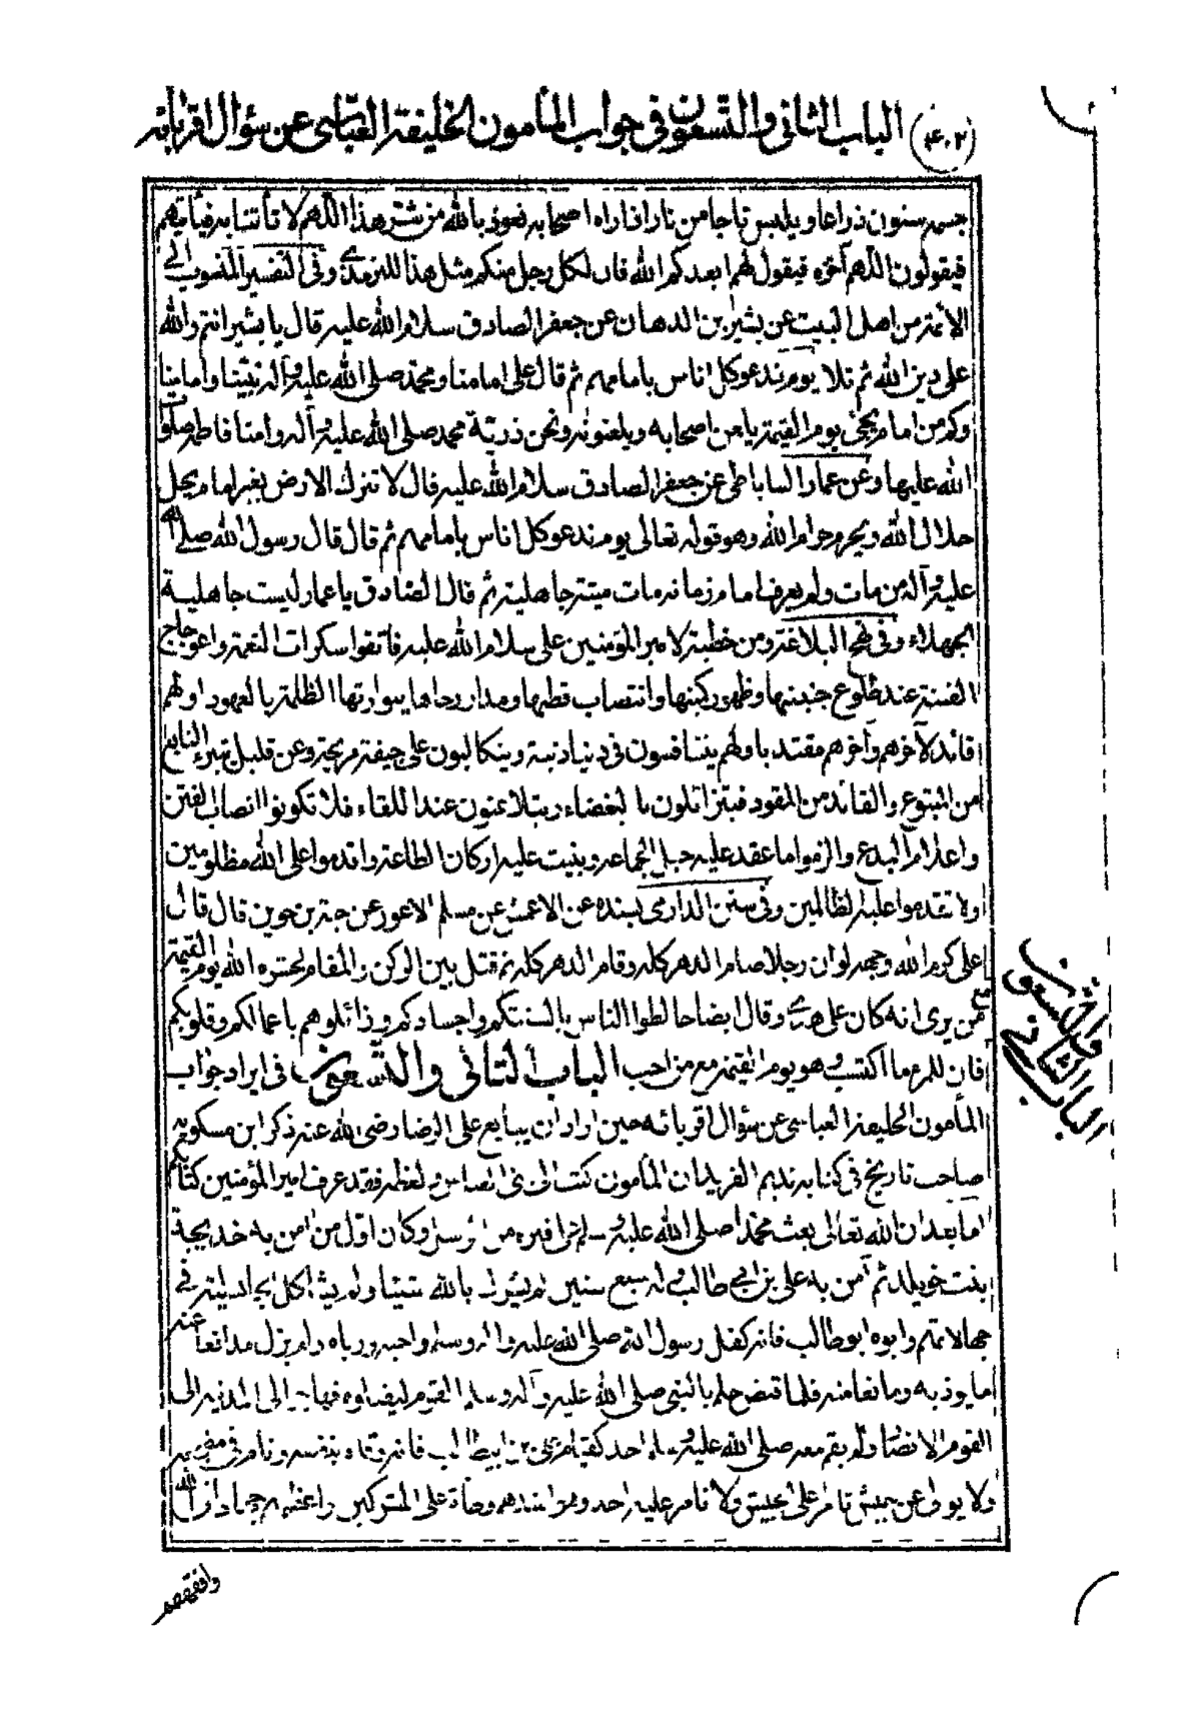 ٤٠٢ الباب الثاني والتسعون في جواب المأمون الخليفة العباسي عن سؤال اقربائه
جسمه ستون ذراعا ويلبس تاجا من نار اذا راه اصحابه نعوذ بالله من شر هذا اللهم لا تأتنا به فيأتيهم
فيقولون اللهم اخزه فيقول لهم ابعدكم الله فان لكل رجل منكم مثل هذا للترمذي وفي التفسير المنسوب الى
الائمة من اهل البيت عن بشير بن الدهان عن جعفر الصادق سلام الله عليه قال يا بشير انتم والله
على دين الله ثم تلا يوم ندعو كل اناس بامامهم ثم قال على امامنا ومحمد صلى الله عليه وآله نبينا وامامنا
وكم من امام يجئ يوم القيمة يلعن اصحابه ويلعنونه ونحن ذرية محمد صلى الله عليه وآله وامنا فاطمه صلوات
الله عليها وعن عمار الساباطي عن جعفر الصادق سلام الله عليه قال لا تترك الارض بغير امام يحل
حلال الله ويحرم حرام الله وهو قوله تعالى يوم ندعو كل اناس بامامهم ثم قال قال رسول الله صلى الله
عليه وآله من مات ولم يعرف امام زمانه مات ميتة جاهلية ثم قال الصادق يا عمار ليست جاهلية
الجهلاء وفي نهج البلاغة ومن خطبة لامير المؤمنين على سلام الله عليه فاتقوا سكرات النعمة واعوجاج
الفتنة عند طلوع جنينها وظهور كمينها وانتصاب قطبها ومدار رحاها يتوارثها الظلمة بالعهود اولهم
قائد لآخرهم وآخرهم مقتد باولهم يتنافسون في دنيا دنية ويتكالبون على جيفة مريحة وعن قليل يتبرء التابع
من المتبوع والقائد من المقود فيتزائلون بالبغضاء ويتلاعنون عند اللقاء فلا تكونوا انصاب الفتن
واعلام البدع والزموا ما عقد عليه حبل الجماعة وبنيت عليه اركان الطاعة واقدموا على الله مظلومين
ولا تقدموا عليه ظالمين وفي سنن الدارمي بسنده عن الاعمش عن مسلم الاعور عن حبة بن جوين قال قال
على كرم الله وجهه لو ان رجلا صام الدهر كله وقام الدهر كله ثم قتل بين الركن والمقام لحشره الله يوم القيمة
مع من يرى انه كان على هدى وقال ايضا خالطوا الناس بالسنتكم واجسادكم وزائلوهم باعمالكم وقلوبكم
فان للمرء ما اكتسب وهو يوم القيمة مع من احب الباب الثاني والتسعون في ايراد جواب
المأمون الخليفة العباسي عن سؤال اقربائه حين اراد ان يبايع على الرضا رضى الله عنه ذكر ابن مسكويه
صاحب تاريخ في كتابه نديم الفريد ان المأمون كتب الى بني العباس فقد عرف امير المؤمنين كتابكم
اما بعد ان الله تعالى بعث محمدا صلى الله عليه وسلم على فترة من الرسل وكان اول من آمن به خديجة
بنت خويلد ثم آمن به على بن ابي طالب وله سبع سنين لم يشرك بالله شيئا ولم يشاكل الجاهلية في
جهالاتهم وابوه ابو طالب فانه كفل رسول الله صلى الله عليه وآله وسلم واحبه ورباه ولم يزل مدافعا عنه
ما يؤذيه ومانعا منه فلما قبض هم بالنبي صلى الله عليه وآله وسلم القوم ليقتلوه فهاجر الى المدينة الى
القوم الانصار ولم يقم معه صلى الله عليه وسلم احد كقيام على بن ابيطالب فانه وقاه بنفسه ونام في مضجعه
ولا يولى عن جيش تامر على الجيش ولا تامر عليه احد وهو اشدهم وطأة على المشركين واعظمهم جهادا في الله
وافقههم
الباب الثاني
والتسعون